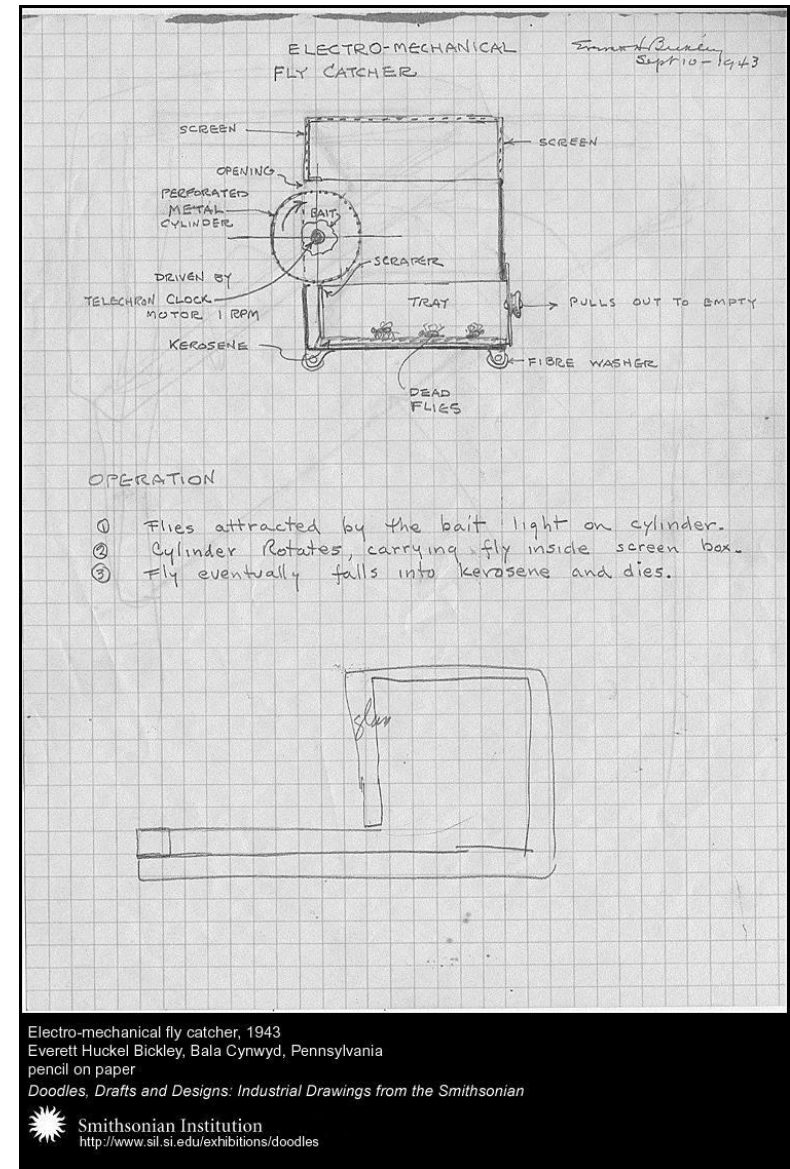 ELECTRO-MECHANICAL
FLY CATCHER
Sept 10-1943
SCREEN
SCREEN
OPENING
PERFORATED
METAL
CYLINDER
BAIT
SCRAPER
DRIVEN BY
TELECHRON CLOCK
MOTOR 1 RPM
TRAY
PULLS OUT TO EMPTY
KEROSENE
FIBRE WASHER
DEAD
FLIES
OPERATION
① Flies attracted by the bait light on cylinder.
② Cylinder Rotates, carrying fly inside screen box.
③ Fly eventually falls into kerosene and dies.
Electro-mechanical fly catcher, 1943
Everett Huckel Bickley, Bala Cynwyd, Pennsylvania
pencil on paper
Doodles, Drafts and Designs: Industrial Drawings from the Smithsonian
Smithsonian Institution
http://www.sil.si.edu/exhibitions/doodles